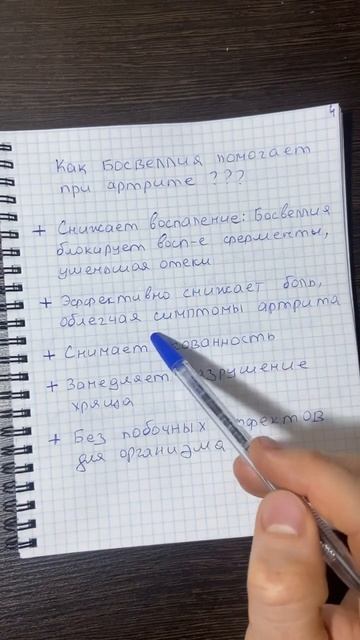 4
Как Босвеллия помогает
при артрите ???
+ Снижает воспаление: Босвеллия
блокирует восп-е ферменты,
уменьшая отеки
+ Эффективно снижает боль,
облегчая симптомы артрита
+ Снимает
+ Замедляет
хряща
+ Без побочных
для организма